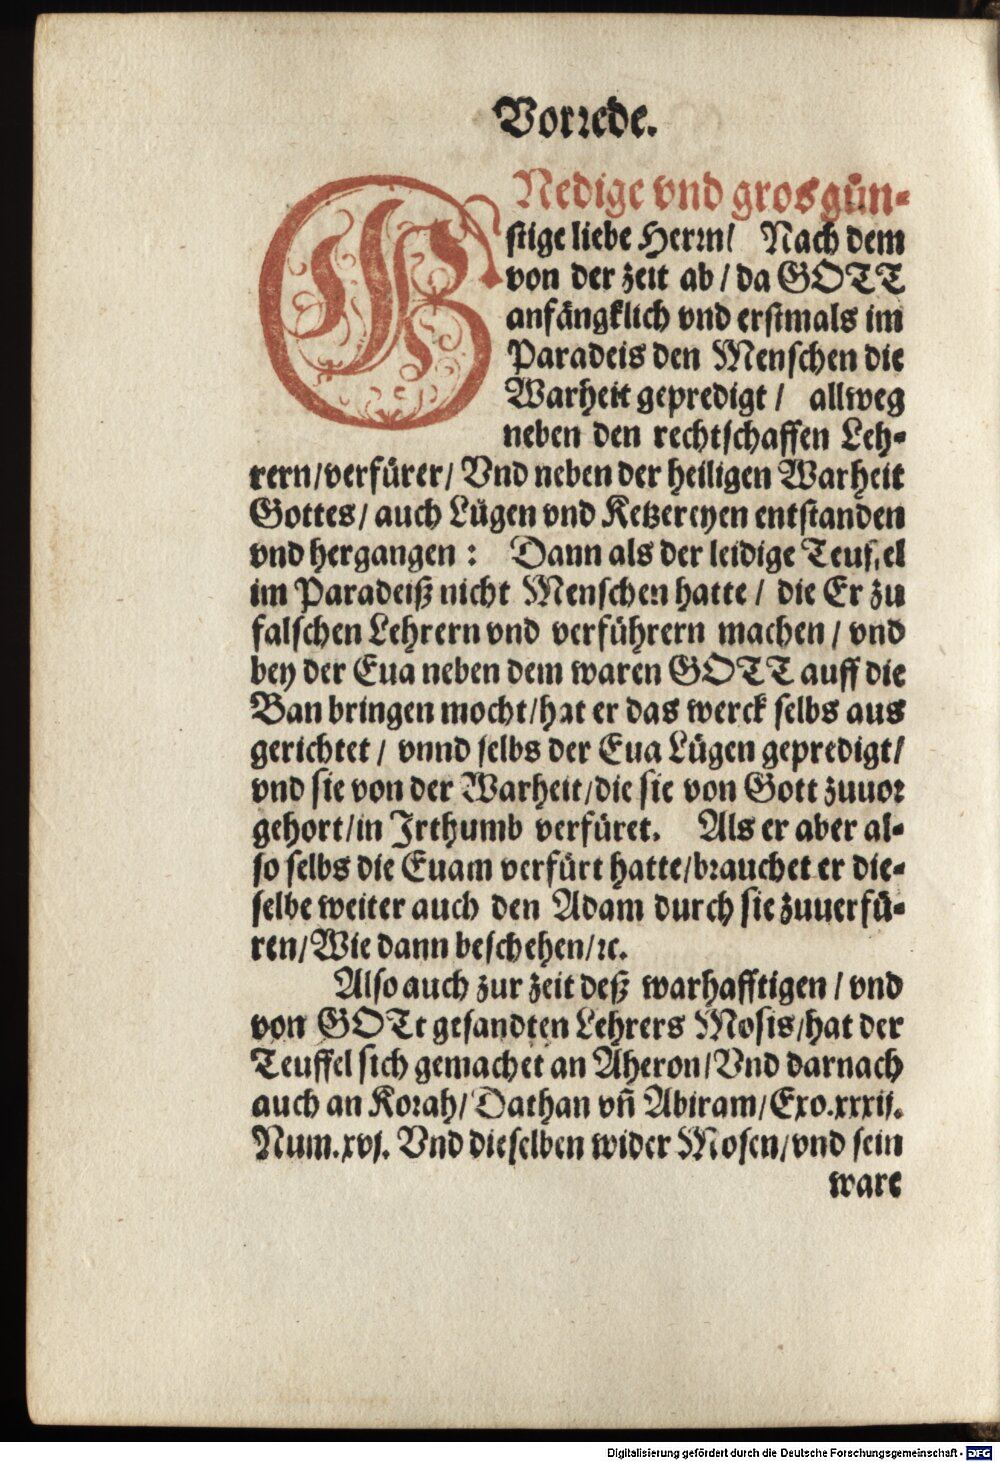 Vorrede.
GNedige vnd grosgün-
stige liebe Herrn/ Nach dem
von der zeit ab/ da GOTT
anfängklich vnd erstmals im
Paradeis den Menschen die
Warheit gepredigt/ allweg
neben den rechtschaffen Leh-
rern/verfürer/ Vnd neben der heiligen Warheit
Gottes/ auch Lügen vnd Ketzereyen entstanden
vnd hergangen: Dann als der leidige Teuffel
im Paradeiß nicht Menschen hatte/ die Er zu
falschen Lehrern vnd verführern machen/ vnd
bey der Eua neben dem waren GOTT auff die
Ban bringen mocht/hat er das werck selbs aus
gerichtet/ vnnd selbs der Eua Lügen gepredigt/
vnd sie von der Warheit/die sie von Gott zuuor
gehort/in Irthumb verfüret. Als er aber al-
so selbs die Euam verfürt hatte/brauchet er die-
selbe weiter auch den Adam durch sie zuuerfü-
ren/Wie dann beschehen/ꝛc.
Also auch zur zeit deß warhafftigen/ vnd
von GOTt gesandten Lehrers Mosis/hat der
Teuffel sich gemachet an Aheron/Vnd darnach
auch an Korah/Dathan vn̄ Abiram/Exo.xxxij.
Num.xvj. Vnd dieselben wider Mosen/vnd sein
ware
Digitalisierung gefördert durch die Deutsche Forschungsgemeinschaft - DFG